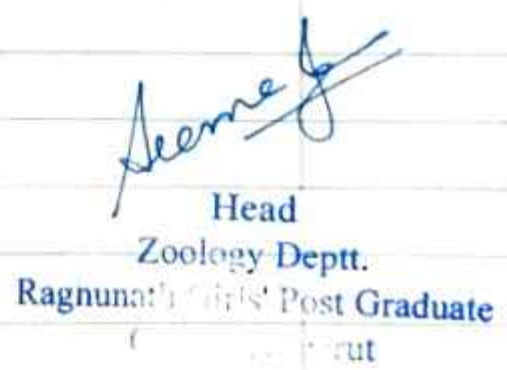 Seema J
Head
Zoology Deptt.
Ragnunath Girls' Post Graduate